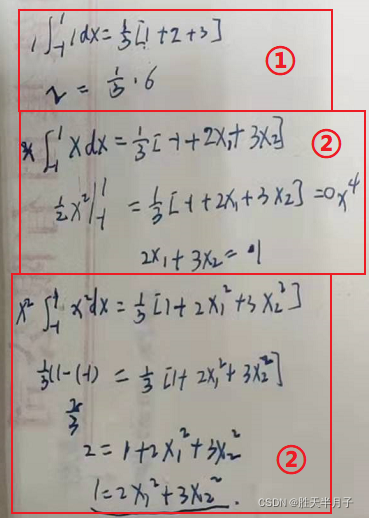 1 ∫₋₁¹ 1dx = 1/3 [1+2+3]
①
2 = 1/3 · 6
x ∫₋₁¹ x dx = 1/3 [-1+2x₁+3x₂]
②
1/2 x² |₋₁¹ = 1/3 [-1+2x₁+3x₂] = 0 x⁴
2x₁+3x₂ = 1
x² ∫₋₁¹ x²dx = 1/3 [1+2x₁²+3x₂²]
1/3 (1-(-1)) = 1/3 [1+2x₁²+3x₂²]
2/3
2 = 1+2x₁²+3x₂²
②
1 = 2x₁²+3x₂².
CSDN @胜天半月子